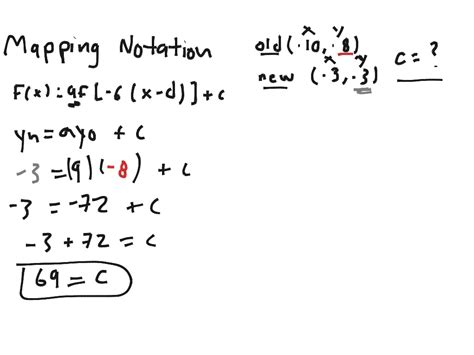 Mapping Notation
F(x) = 9f[-6(x-d)] + c
yn = ayo + c
-3 = (9)(-8) + c
-3 = -72 + c
-3 + 72 = c
69 = c
x y
old (-10, -8)
x y
new (-3, -3)
c = ?